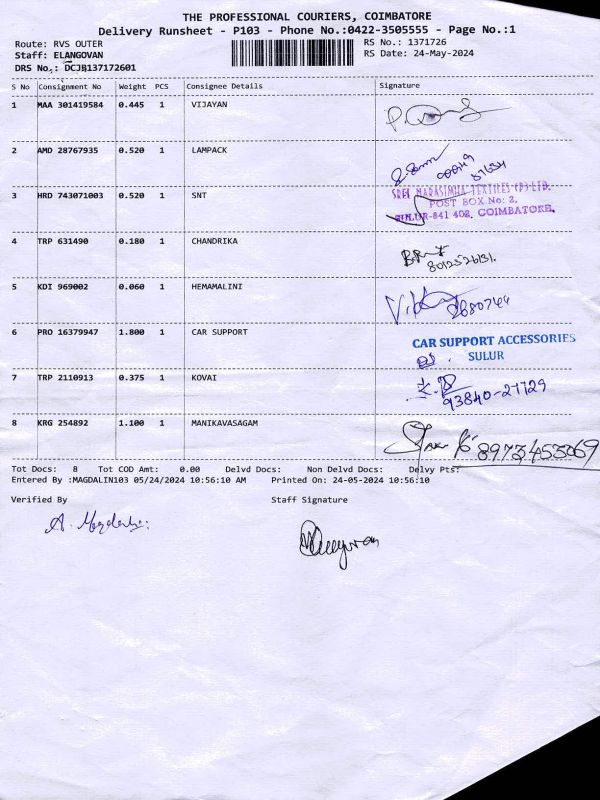 THE PROFESSIONAL COURIERS, COIMBATORE
Delivery Runsheet - P103 - Phone No.:0422-3505555 - Page No.:1
Route: RVS OUTER RS No.: 1371726
Staff: ELANGOVAN RS Date: 24-May-2024
DRS No.: DCJB137172601
S No Consignment No Weight PCS Consignee Details Signature
1 MAA 301419584 0.445 1 VIJAYAN
2 AMD 28767935 0.520 1 LAMPACK
3 HRD 743071003 0.520 1 SNT
SREE NARASIMHA TEXTILES (P) LTD.
POST BOX No: 2,
SULUR-641 402. COIMBATORE.
4 TRP 631490 0.180 1 CHANDRIKA
8012526131.
5 KDI 969002 0.060 1 HEMAMALINI
6 PRO 16379947 1.800 1 CAR SUPPORT
CAR SUPPORT ACCESSORIES
SULUR
7 TRP 2110913 0.375 1 KOVAI
93840-27729
8 KRG 254892 1.100 1 MANIKAVASAGAM
8973453069
Tot Docs: 8 Tot COD Amt: 0.00 Delvd Docs: Non Delvd Docs: Delvy Pts:
Entered By :MAGDALIN103 05/24/2024 10:56:10 AM Printed On: 24-05-2024 10:56:10
Verified By Staff Signature